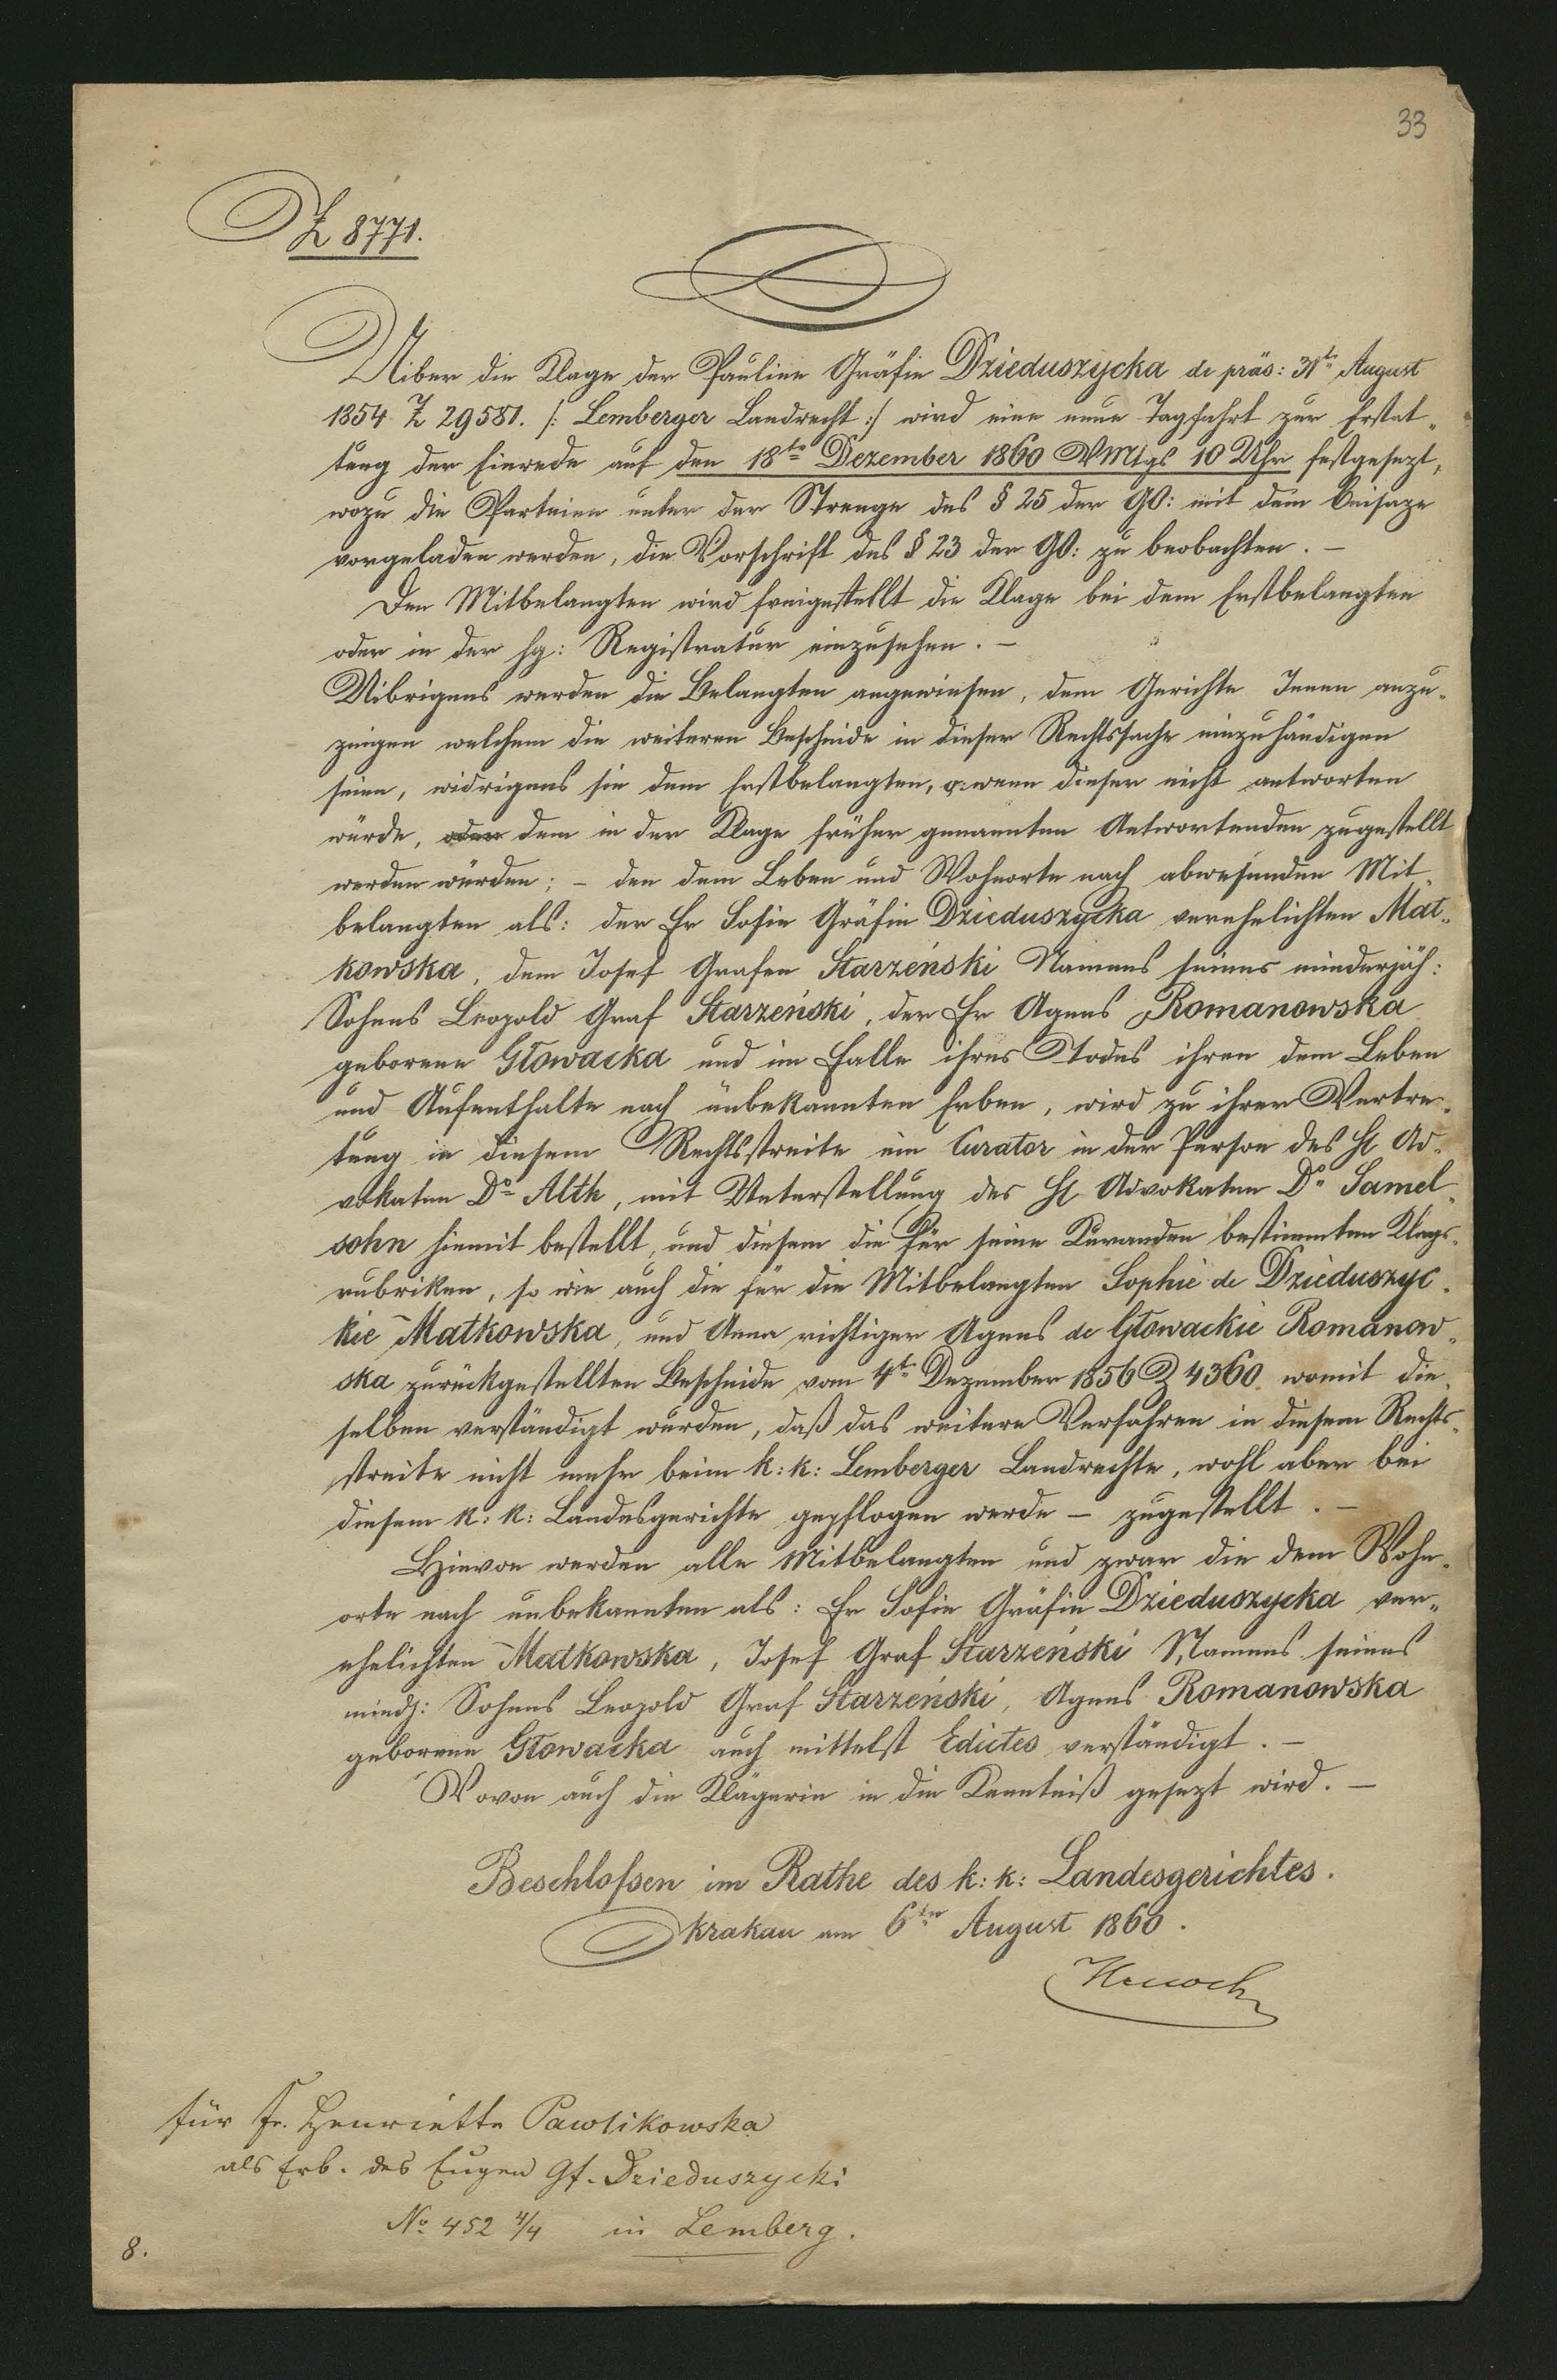 33
Z 8771.
Uiber die Klage der Pauline Gräfin Dzieduszycka de präs: 31t August
1854 Z 29581. /: Lemberger Landrecht :/ wird eine neue Tagfahrt zur Erstat„
tung der Einrede auf den 18te Dezember 1860 VMtgs 10 Uhr festgesezt,
wozu die Parteien unter der Strenge des § 25 der GO: mit dem Beisaze
vorgeladen werden, die Vorschrift des § 23 der GO: zu beobachten. –
Den Mitbelangten wird freigestellt die Klage bei dem Erstbelangten
oder in der hg: Registratur einzusehen. –
Uibrigens werden die Belangten angewiesen, dem Gerichte Jenen anzu„
zeigen welchem die weiteren Bescheide in dieser Rechtssache einzuhändigen
seien, widrigens sie dem Erstbelangten, wenn dieser nicht antworten
würde, oder dem in der Klage früher genannten Antwortenden zugestellt
werden würden; – den dem Leben und Wohnorte nach abwesenden Mit„
belangten als: der Fr Sofie Gräfin Dzieduszycka verehelichten Mat„
kowska, dem Josef Grafen Starzeński Namens seines minderjäh:
Sohnes Leopold Graf Starzeński, der Fr Agnes Romanowska
geborene Głowacka und im Falle ihres Todes ihren dem Leben
und Aufenthalte nach unbekannten Erben, wird zu ihrer Vertre„
tung in diesem Rechtsstreite ein Curator in der Person des H Ad„
vokaten Dr Alth, mit Unterstellung des H Advokaten Dr Samel„
sohn hiemit bestellt, und diesem die für seine Kuranden bestimmten Klags„
rubriken, so wie auch die für die Mitbelangten Sophie de Dzieduszyc„
kie Matkowska, und Anna richtiger Agnes de Głowackie Romanow„
ska zurückgestellten Bescheide vom 4t Dezember 1856 Z 4360. womit die„
selben verständigt wurden, daß das weitere Verfahren in diesem Rechts„
streite nicht mehr beim k: k: Lemberger Landrechte, wohl aber bei
diesem k: k: Landesgerichte gepflogen werde – zugestellt. –
Hievon werden alle Mitbelangten und zwar die dem Wohn„
orte nach unbekannten als: Fr Sofie Gräfin Dzieduszycka ver„
ehelichten Matkowska, Josef Graf Starzeński Namens seines
mindj: Sohnes Leopold Graf Starzeński, Agnes Romanowska
geborene Głowacka auch mittelst Edictes verständigt. –
Wovon auch die Klägerin in die Kenntniß gesezt wird. –
Beschloßen im Rathe des k: k: Landesgerichtes.
Krakau am 6ten August 1860.
für Fr. Henriette Pawlikowska
als Erb. des Eugen Gf. Dzieduszycki
No 452 4/4 in Lemberg.
8.